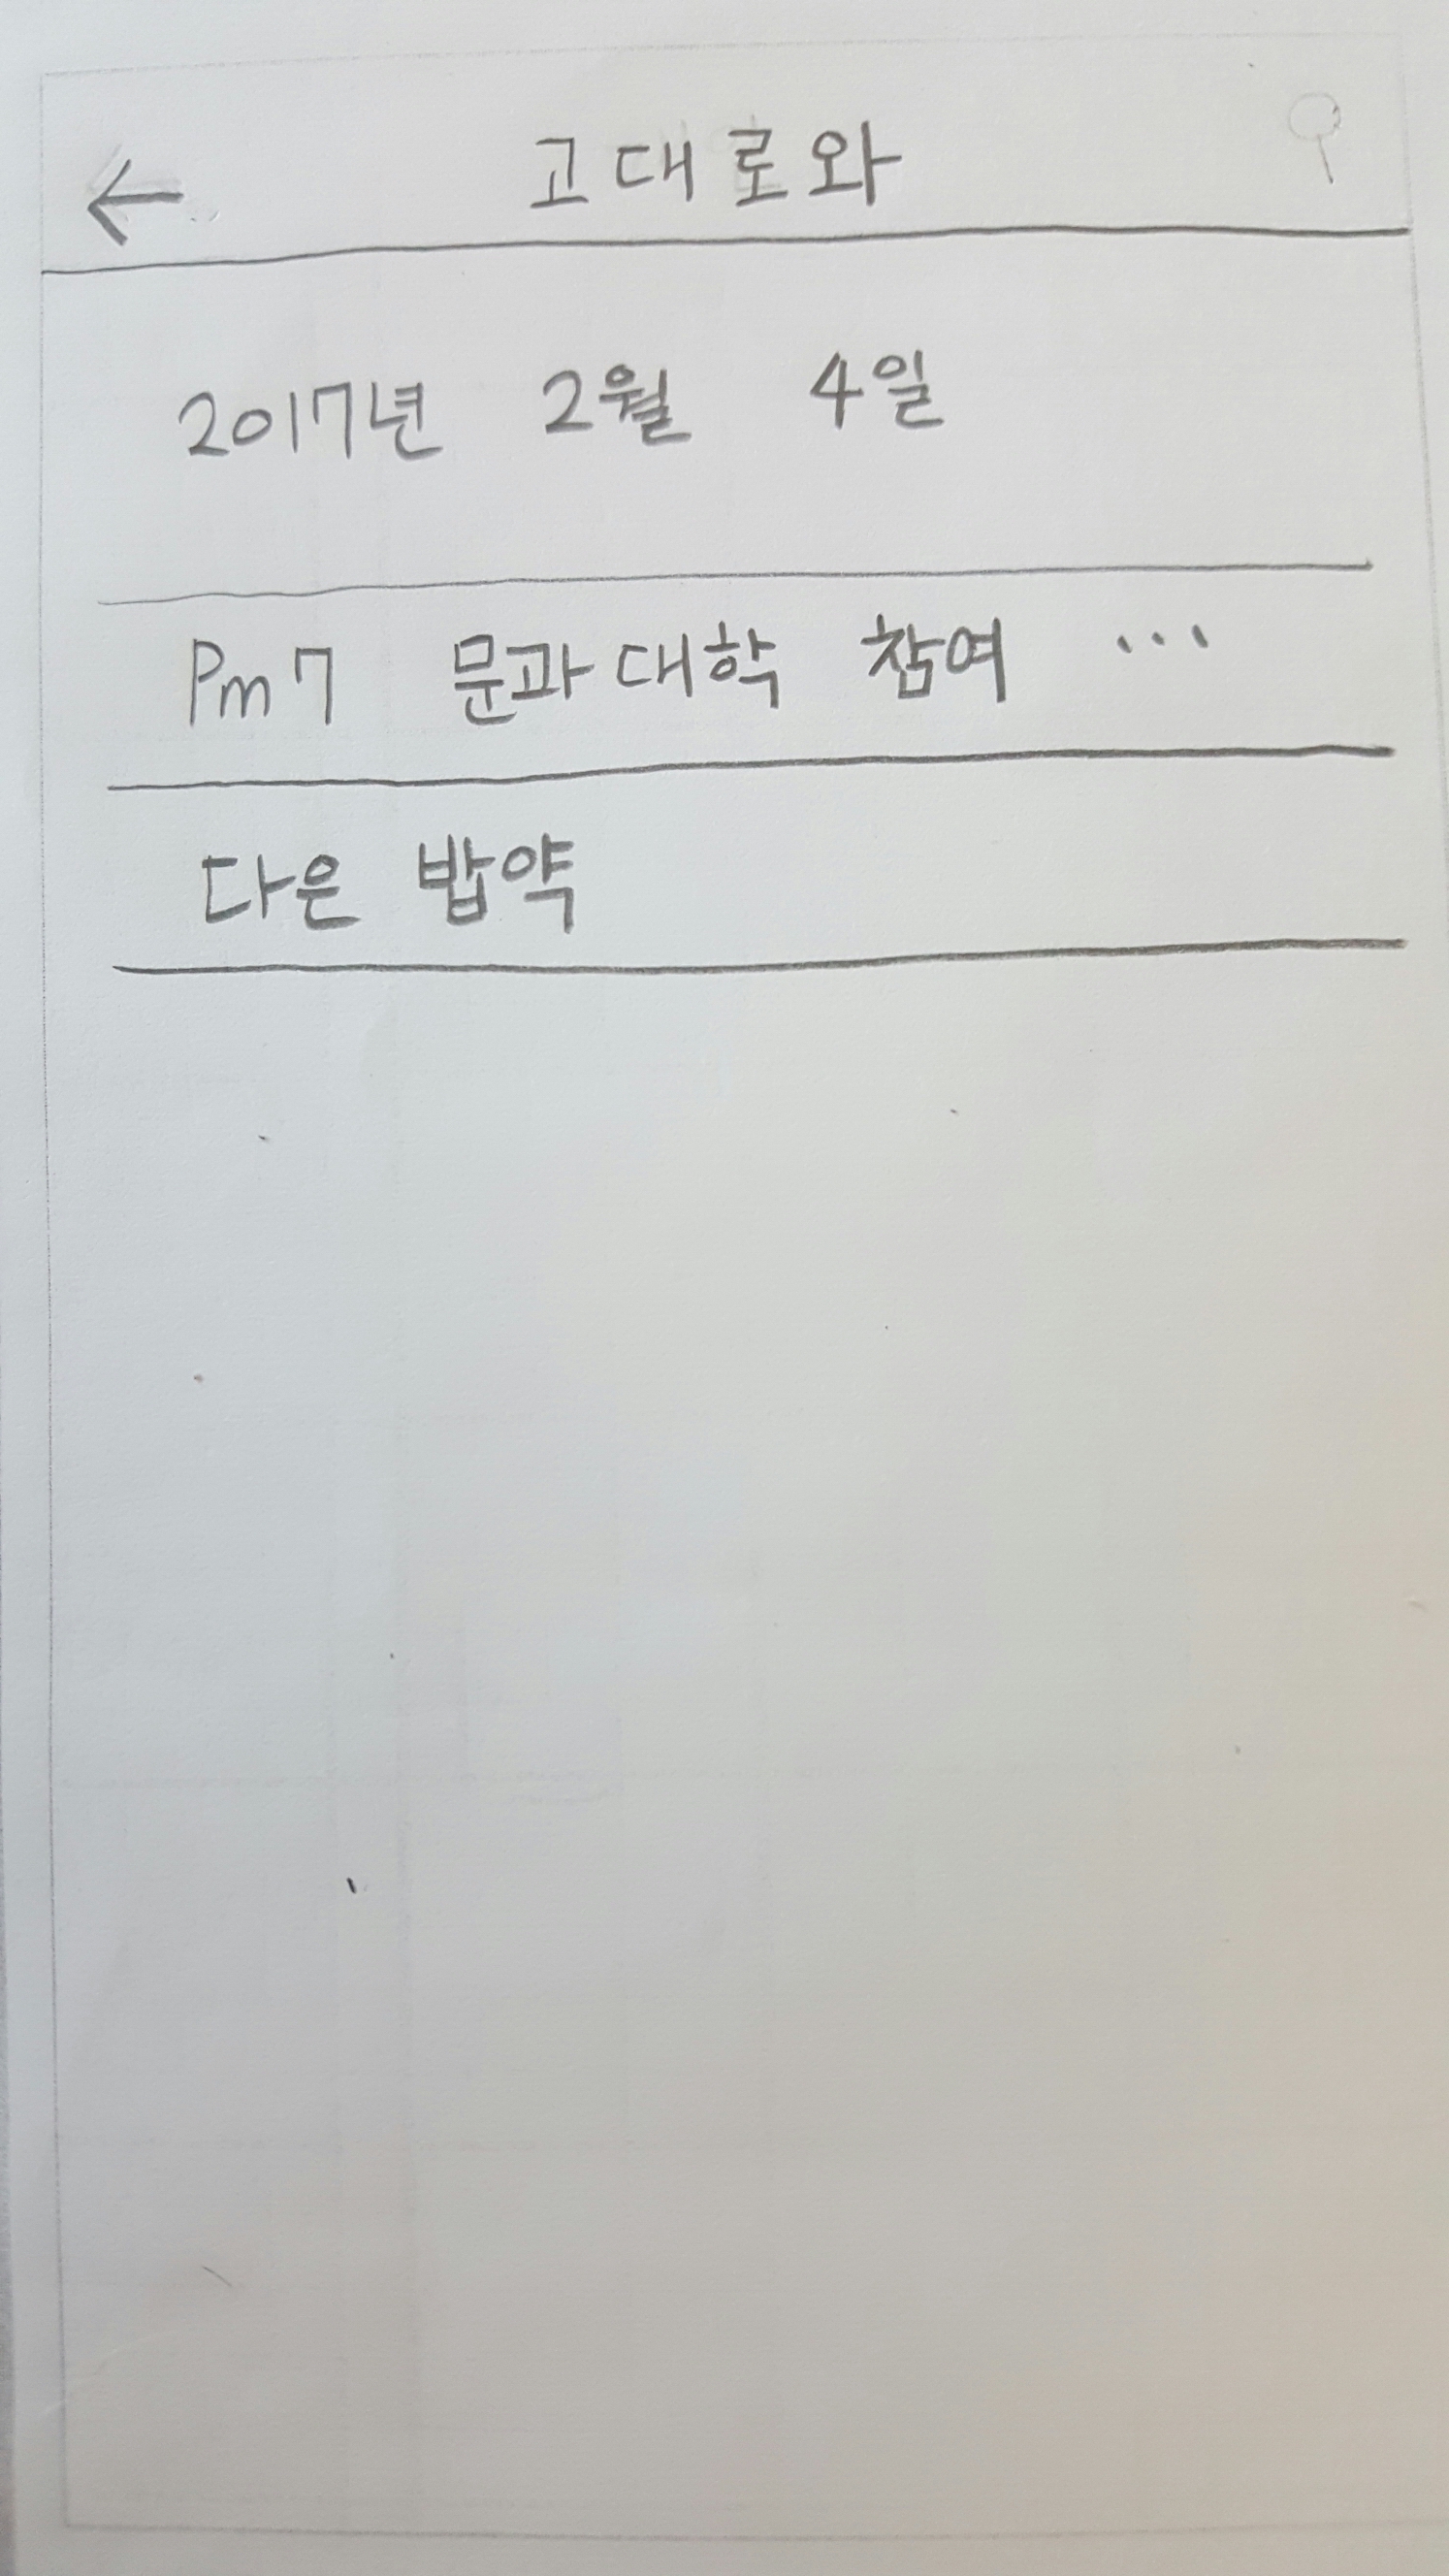 ← 고대로와
2017년 2월 4일
Pm7 문과대학 참여 ...
다은 밥약